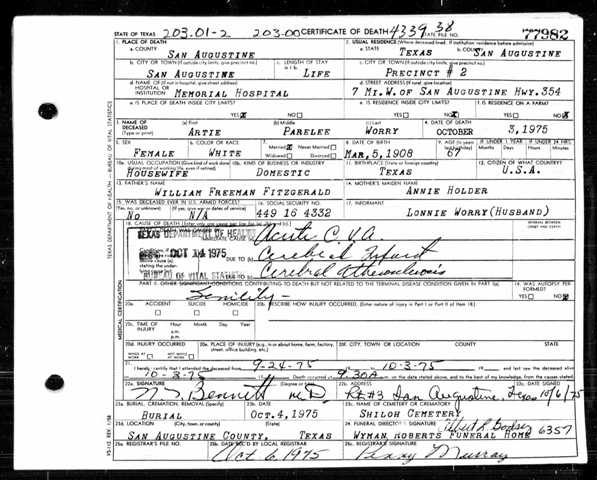 STATE OF TEXAS 203.01-2 203.00 CERTIFICATE OF DEATH 4339 38 77982
STATE FILE NO.
1. PLACE OF DEATH 2. USUAL RESIDENCE (Where deceased lived. If institution: residence before admission)
a. COUNTY SAN AUGUSTINE a. STATE TEXAS b. COUNTY SAN AUGUSTINE
b. CITY OR TOWN (If outside city limits, give precinct no.) c. LENGTH OF STAY c. CITY OR TOWN (If outside city limits, give precinct no.)
SAN AUGUSTINE LIFE PRECINCT # 2
d. NAME OF (If not in hospital, give street address) HOSPITAL OR INSTITUTION d. STREET ADDRESS (If rural, give location)
MEMORIAL HOSPITAL 7 MI. W. OF SAN AUGUSTINE HWY. 354
e. IS PLACE OF DEATH INSIDE CITY LIMITS? e. IS RESIDENCE INSIDE CITY LIMITS? f. IS RESIDENCE ON A FARM?
YES NO YES NO YES NO
3. NAME OF DECEASED (a) First (b) Middle (c) Last 4. DATE OF DEATH
ARTIE PARELEE WORRY OCTOBER 3, 1975
5. SEX 6. COLOR OR RACE 7. Married Never Married Widowed Divorced 8. DATE OF BIRTH 9. AGE IF UNDER 1 YEAR IF UNDER 24 HRS
FEMALE WHITE MAR, 5, 1908 67
10a. USUAL OCCUPATION 10b. KIND OF BUSINESS OR INDUSTRY 11. BIRTHPLACE (State or foreign country) 12. CITIZEN OF WHAT COUNTRY?
HOUSEWIFE DOMESTIC TEXAS U.S.A.
13. FATHER'S NAME 14. MOTHER'S MAIDEN NAME
WILLIAM FREEMAN FITZGERALD ANNIE HOLDER
15. WAS DECEASED EVER IN U.S. ARMED FORCES? 16. SOCIAL SECURITY NO. 17. INFORMANT
NO N/A 449 16 4332 LONNIE WORRY (HUSBAND)
18. CAUSE OF DEATH
Acute C.V.A.
TEXAS DEPARTMENT OF HEALTH
OCT 14 1975 DUE TO Cerebral Infarct
DUE TO Cerebral Atherosclerosis
BUREAU OF VITAL STATISTICS
PART II. OTHER SIGNIFICANT CONDITIONS CONTRIBUTING TO DEATH BUT NOT RELATED TO THE TERMINAL DISEASE CONDITION GIVEN IN PART I(a) 19. WAS AUTOPSY PERFORMED?
Senility - YES NO
20a. ACCIDENT SUICIDE HOMICIDE 20b. DESCRIBE HOW INJURY OCCURRED. (Enter nature of injury in Part I or Part II of item 18.)
20c. TIME OF INJURY Hour Month Day Year
a.m.
p.m.
20d. INJURY OCCURRED 20e. PLACE OF INJURY (e.g. in or about home, farm, factory, street, office building, etc.) 20f. CITY, TOWN, OR LOCATION COUNTY STATE
WHILE AT WORK NOT WHILE AT WORK
21. I hereby certify that I attended the deceased from 9-24-75 10-3-75 and last saw the deceased alive
10-3-75 Death occurred at 9:30A m. on the date stated above, and to the best of my knowledge, from the causes stated
22a. SIGNATURE (Degree or title) 22b. ADDRESS 22c. DATE SIGNED
Bennett M.D. Rt #3 San Augustine, Texas 10/6/75
23a. BURIAL, CREMATION, REMOVAL (Specify) 23b. DATE 23c. NAME OF CEMETERY OR CREMATORY
BURIAL OCT. 4, 1975 SHILOH CEMETERY
23d. LOCATION (City, town, or county) (State) 24. FUNERAL DIRECTOR'S SIGNATURE
SAN AUGUSTINE COUNTY, TEXAS WYMAN ROBERTS FUNERAL HOME 6357
25a. REGISTRAR'S FILE NO. 25b. DATE REC'D BY LOCAL REGISTRAR 25c. REGISTRAR'S SIGNATURE
Oct 6, 1975 Penny Murray
TEXAS DEPARTMENT OF HEALTH - BUREAU OF VITAL STATISTICS
MEDICAL CERTIFICATION